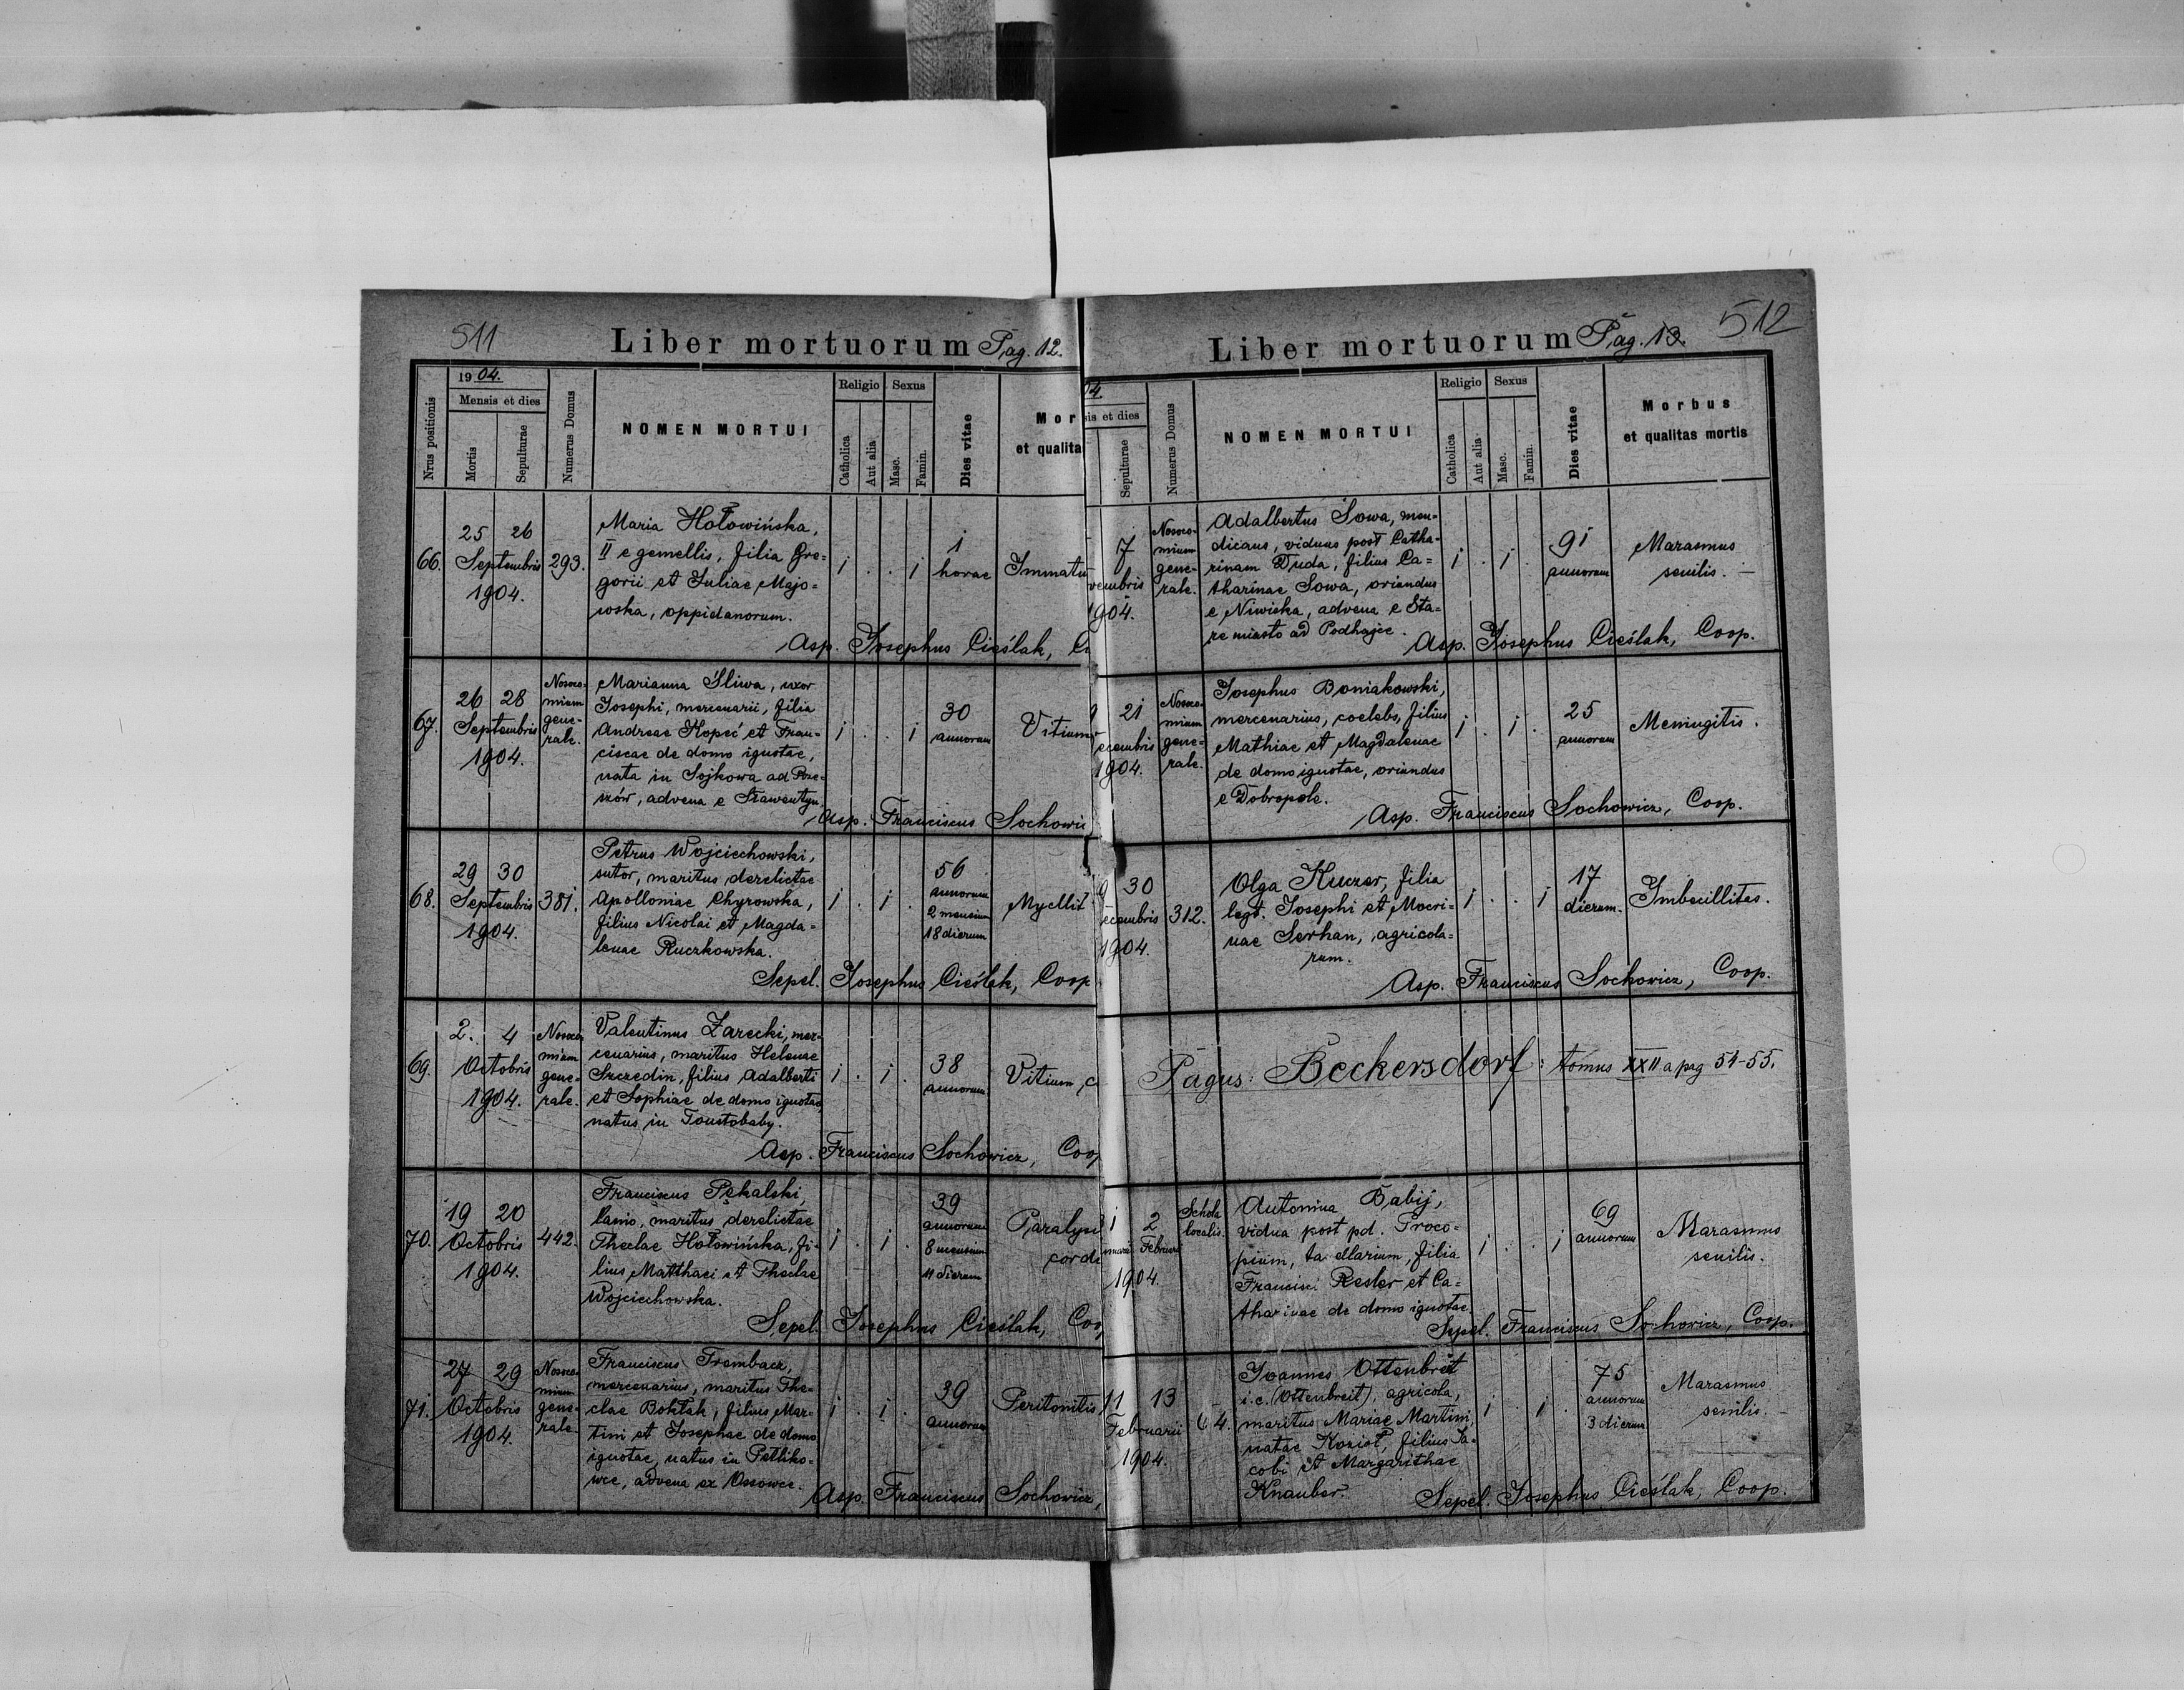 511
Liber mortuorum Pag. 12.
Nrus positionis
1904.
Mensis et dies
Mortis
Sepulturae
Numerus Domus
NOMEN MORTUI
Religio
Sexus
Catholica
Aut alia
Masc.
Famin.
Dies vitae
Mor
et qualita
66.
25 26
Septembris
1904.
293.
Maria Hołowińska,
II e gemellis, filia Gre=
gorii et Juliae Majo=
wska, oppidanorum.
1
horae
Immatu
Asp. Josephus Cieślak,
67.
26 28
Septembris
1904.
Nosoco-
mium
gene-
rale.
Marianna Śliwa, uxor
Josephi, mercenarii, filia
Andreae Kopeć et Fran=
ciscae de domo ignotae,
nata in Sojkowa ad
advena e
30
annorum
Vitium
Asp. Franciscus Sochowi
68.
29 30
Septembris
1904.
381.
Petrus Wojciechowski,
sutor, maritus derelictae
Apolloniae Chyrowska,
filius Nicolai et Magda=
lenae Ruczkowska.
56
annorum
2 mensium
18 dierum
Myellit
Sepel. Josephus Cieślak, Coop
69.
2. 4
Octobris
1904.
Nosoco-
mium
gene-
rale.
Valentinus Zarecki, mer=
cenarius, maritus Helenae
Szczedin, filius Adalberti
et Sophiae de domo ignotae,
natus in Toustobaby.
38
annorum
Vitium c
Asp. Franciscus Sochowicz, Coop
70.
19 20
Octobris
1904.
442.
Franciscus Pękalski,
lanio, maritus derelictae
Theclae Hołowińska, fi=
lius Matthaei et Theclae
Wojciechowska.
39
annorum
8 mensium
11 dierum
Paralys
cordi
Sepel. Josephus Cieślak, Coop
71.
27 29
Octobris
1904.
Nosoco-
mium
gene-
rale.
Franciscus Trembacz,
mercenarius, maritus The=
clae Bohtak, filius Mar=
tini et Josephae de domo
ignotae, natus in Petliko=
wce, advena ex Ossowce.
39
annorum
Peritonitis
Asp. Franciscus Sochowicz,
512
Liber mortuorum Pag. 13.
04.
sis et dies
Sepulturae
Numerus Domus
NOMEN MORTUI
Religio
Sexus
Catholica
Aut alia
Masc.
Famin.
Dies vitae
Morbus
et qualitas mortis
17
vembris
1904.
Nosoco-
mium
gene-
rale.
Adalbertus Sowa, men=
dicans, viduus post Catha=
rinam Duda, filius Ca=
tharinae Sowa, oriundus
e Niwiska, advena e Sta=
re miasto ad Podhajce.
91
annorum
Marasmus
senilis.
Asp. Josephus Cieślak, Coop.
21
ecembris
1904.
Nosoco-
mium
gene-
rale.
Josephus Boniakowski,
mercenarius, coelebs, filius
Mathiae et Magdalenae
de domo ignotae, oriundus
e Dobropole.
25
annorum
Meningitis.
Asp. Franciscus Sochowicz, Coop.
30
ecembris
1904.
312.
Olga Kuczer, filia
legt. Josephi et Macri=
nae Serhan, agricola=
rum.
17
dierum.
Imbecillitas.
Asp. Franciscus Sochowicz, Coop.
Pagus: Beckersdorf: tomus XXII a pag 54-55.
1 2
nuarii Februarii
1904.
Schola
localis.
Antonina Babij,
vidua post pd. Proco=
pium, filia
Francisci Resler et Ca=
tharinae de domo ignotae.
69
annorum
Marasmus
senilis.
Sepel. Franciscus Sochowicz, Coop.
11 13
Februarii
1904.
64.
Joannes Ottenbret
i. e. (Ottenbreit), agricola,
maritus Mariae Martini,
natae Kozioł, filius Ja=
cobi et Margarithae
Knauber.
75
annorum
3 dierum
Marasmus
senilis.
Sepel. Josephus Cieślak, Coop.